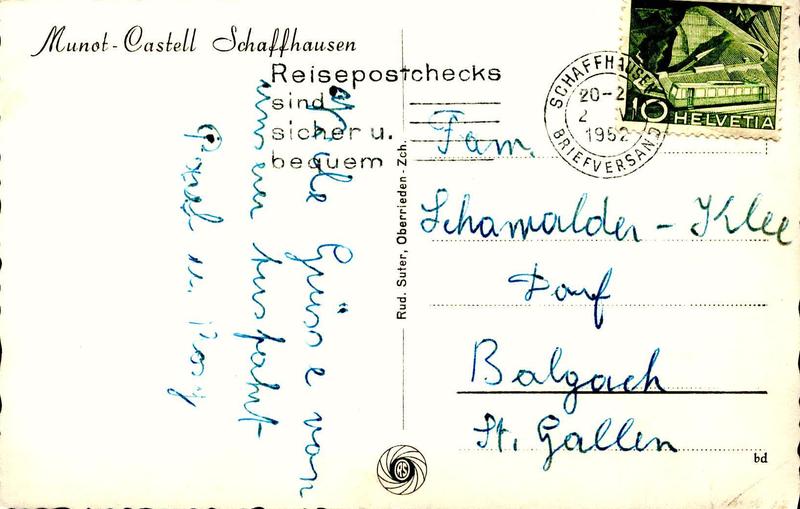 Munot-Castell Schaffhausen
Reisepostchecks
sind
sicher u.
bequem
SCHAFFHAUSEN
20-2
2 VI
1952
BRIEFVERSAND
10 HELVETIA
Viele Grüsse von
unserer Ausfahrt
u. Rosy
Rud. Suter, Oberrieden-Zch.
Fam.
Schawalder-Klee
Dorf
Balgach
St. Gallen
RS
bd